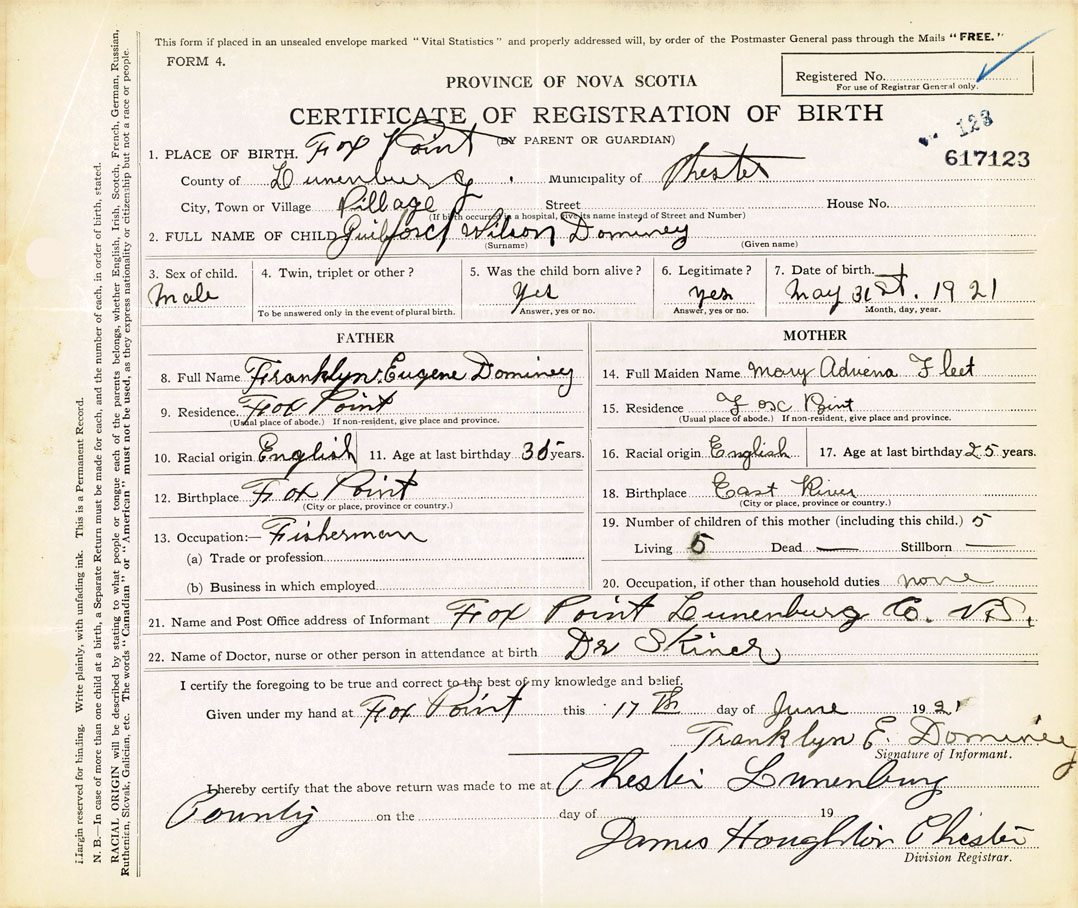 This form if placed in an unsealed envelope marked "Vital Statistics" and properly addressed will, by order of the Postmaster General pass through the Mails "FREE."
FORM 4.
Registered No.
For use of Registrar General only.
PROVINCE OF NOVA SCOTIA
CERTIFICATE OF REGISTRATION OF BIRTH
(BY PARENT OR GUARDIAN)
123
617123
1. PLACE OF BIRTH. Fox Point
County of Lunenburg Municipality of Chester
City, Town or Village Village Street House No.
(If birth occurred in a hospital, give its name instead of Street and Number)
2. FULL NAME OF CHILD Guilford Wilson Dominey
(Surname) (Given name)
3. Sex of child. 4. Twin, triplet or other? 5. Was the child born alive? 6. Legitimate? 7. Date of birth.
Male Yes yes May 31st. 1921
To be answered only in the event of plural birth. Answer, yes or no. Answer, yes or no. Month, day, year.
FATHER
8. Full Name Franklyn Eugene Dominey
9. Residence. Fox Point
(Usual place of abode.) If non-resident, give place and province.
10. Racial origin English 11. Age at last birthday 35 years.
12. Birthplace Fox Point
(City or place, province or country.)
13. Occupation:— Fisherman
(a) Trade or profession
(b) Business in which employed
MOTHER
14. Full Maiden Name Mary Adviena Fleet
15. Residence Fox Point
(Usual place of abode.) If non-resident, give place and province.
16. Racial origin English 17. Age at last birthday 25 years.
18. Birthplace East River
(City or place, province or country.)
19. Number of children of this mother (including this child.) 5
Living 5 Dead — Stillborn —
20. Occupation, if other than household duties none
21. Name and Post Office address of Informant Fox Point Lunenburg Co. N.S.
22. Name of Doctor, nurse or other person in attendance at birth Dr Skiner
I certify the foregoing to be true and correct to the best of my knowledge and belief.
Given under my hand at Fox Point this 17th day of June 1921
Franklyn E. Dominey
Signature of Informant.
I hereby certify that the above return was made to me at Chester Lunenburg
County on the day of 19
James Houghton Chester
Division Registrar.
Margin reserved for binding. Write plainly, with unfading ink. This is a Permanent Record.
N. B.—In case of more than one child at a birth, a Separate Return must be made for each, and the number of each, in order of birth, stated.
RACIAL ORIGIN will be described by stating to what people or tongue each of the parents belongs, whether English, Irish, Scotch, French, German, Russian,
Ruthenian, Slovak, Galician, etc. The words "Canadian" or "American" must not be used, as they express nationality or citizenship but not a race or people.